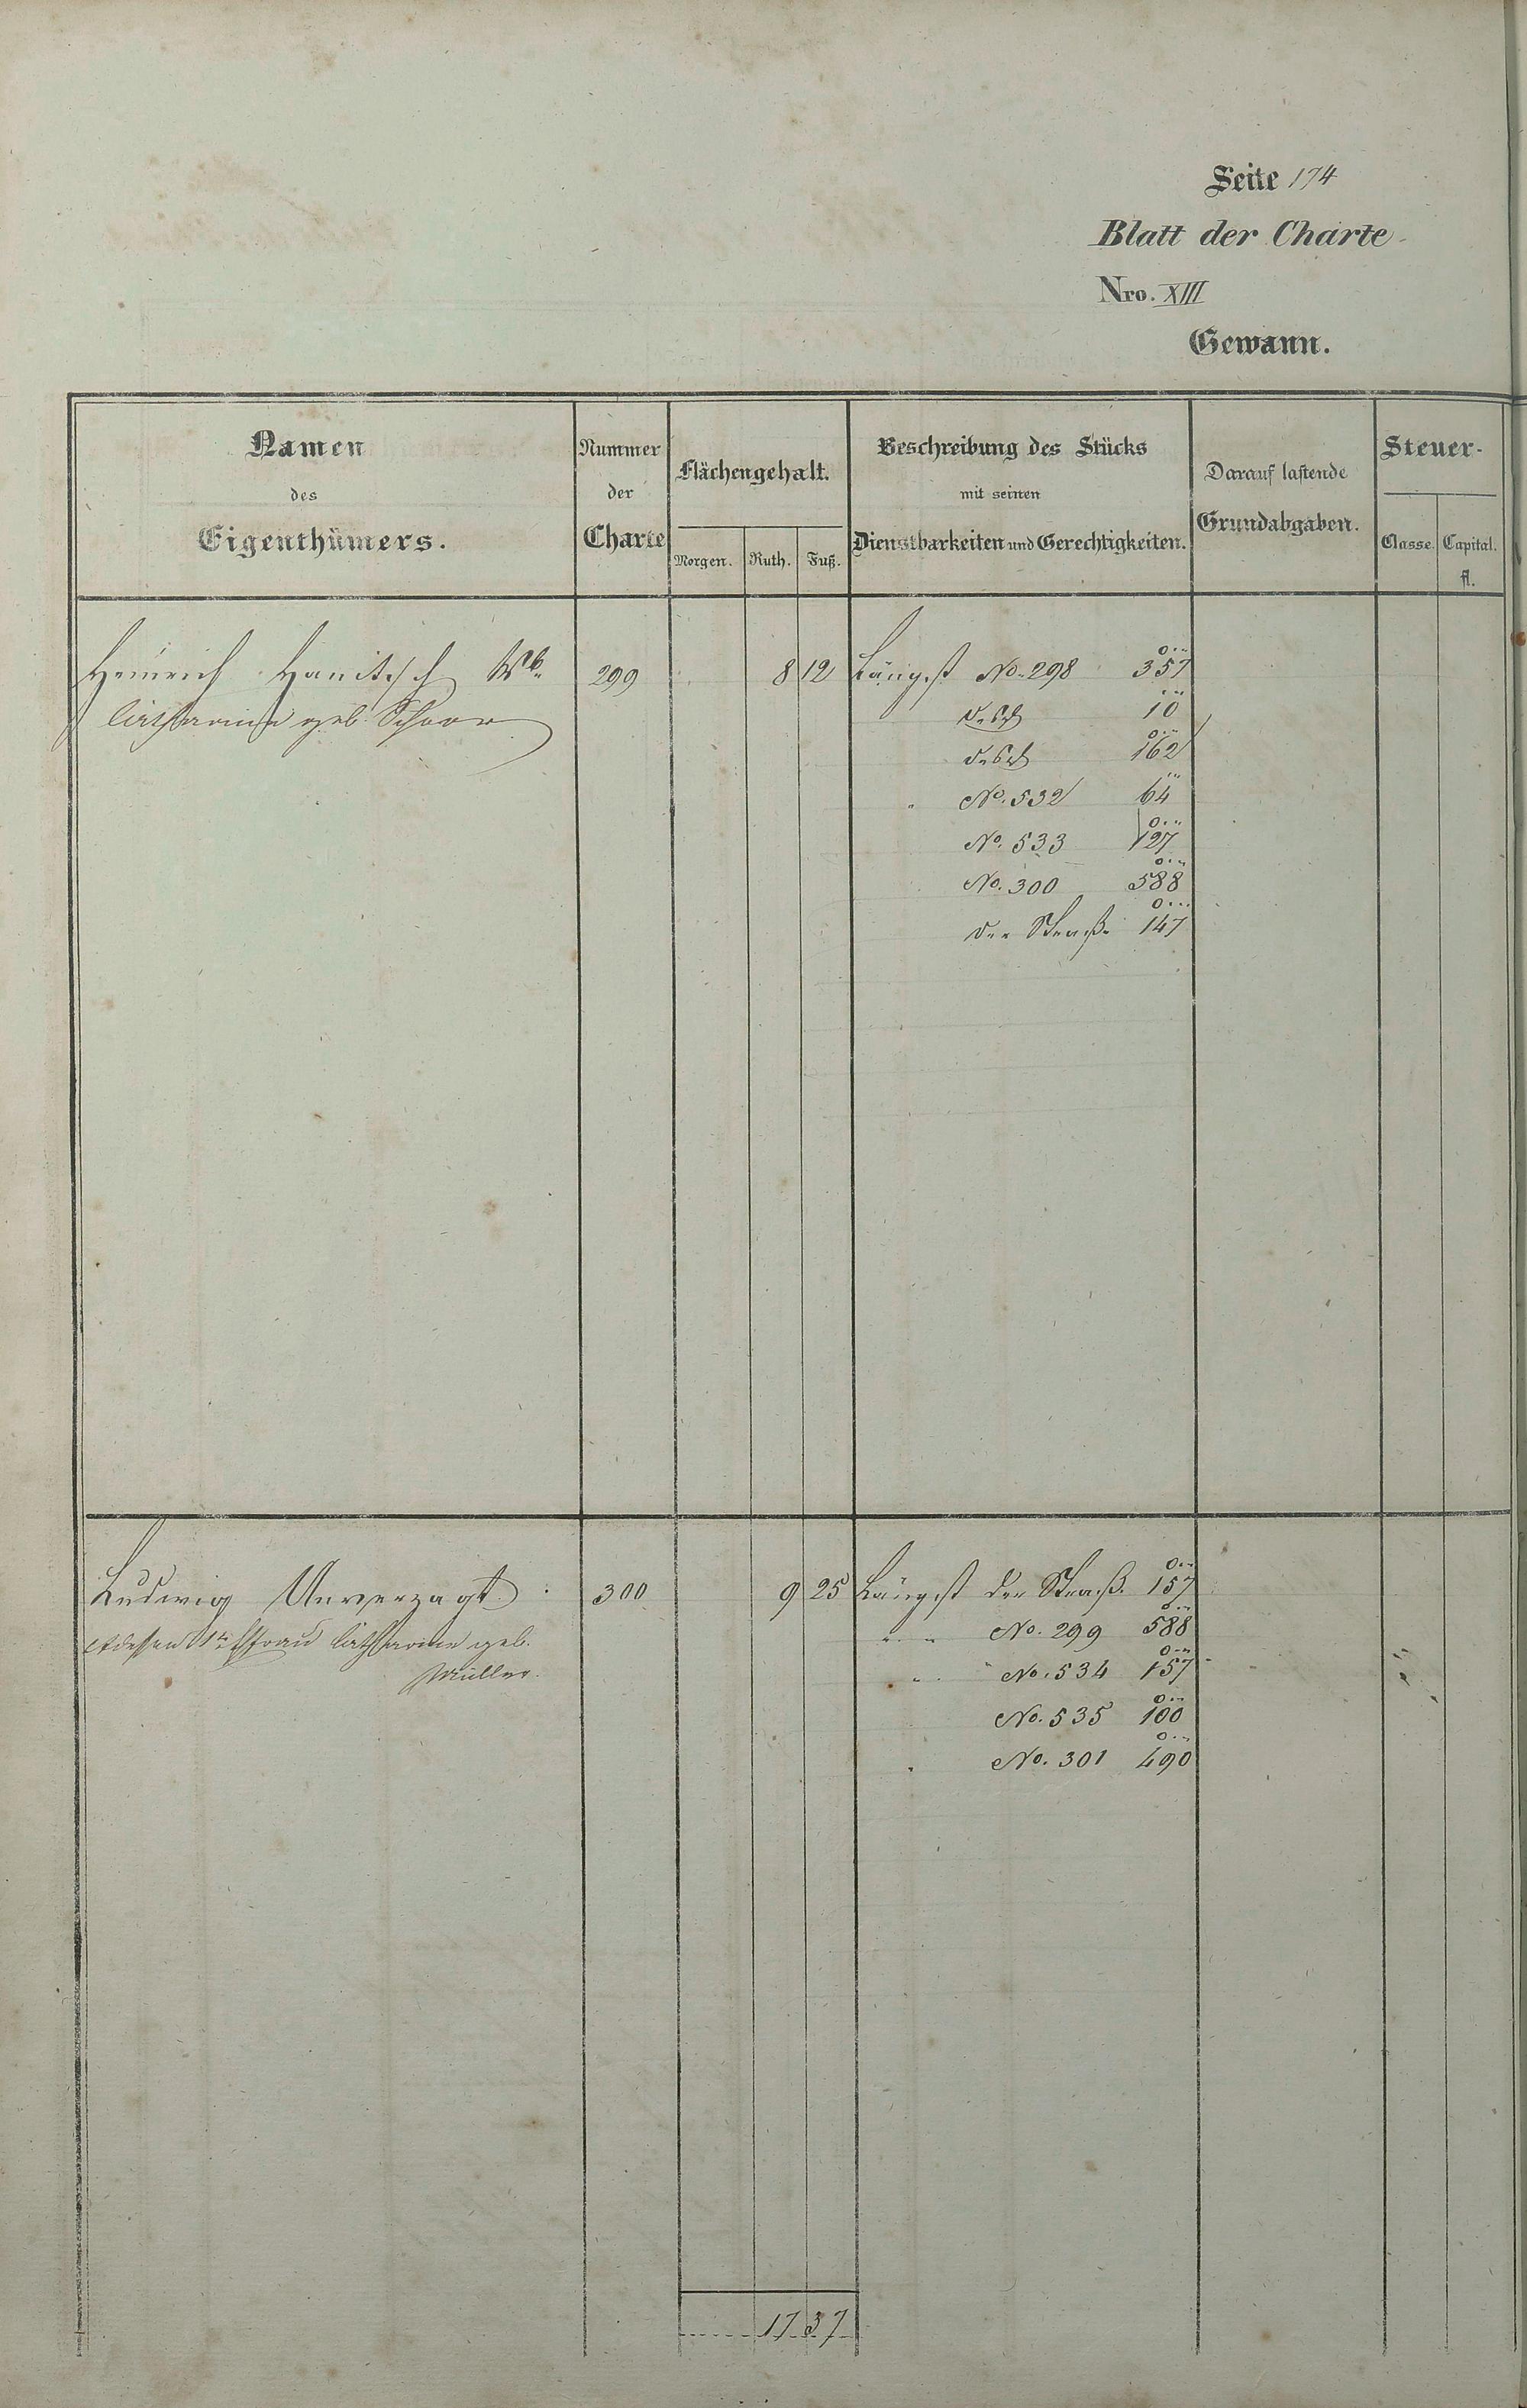 Seite 174
Blatt der Charte
Nro. XIII
Gewann.
Namen
des
Eigenthümers.
Nummer
der
Charte
Flächengehalt.
Morgen. Ruth. Fuß.
Beschreibung des Stücks
mit seinen
Dienstbarkeiten und Gerechtigkeiten.
Darauf lastende
Grundabgaben.
Steuer-
Classe. Capital.
fl.
Heinrich Hanitsch Wb. 299 8 12 Längst No. 298 357
Catharina geb. Schaar
10
162
No. 532 64
No. 533 127
No. 300 588
der Straße 147
Ludwig Unverzagt 300 9 25 Längst der Straße 157
dessen Ehefrau Catharine geb.
Müller.
" " No. 299 588
" " No. 534 157
No. 535 100
" No. 301 490
17 37